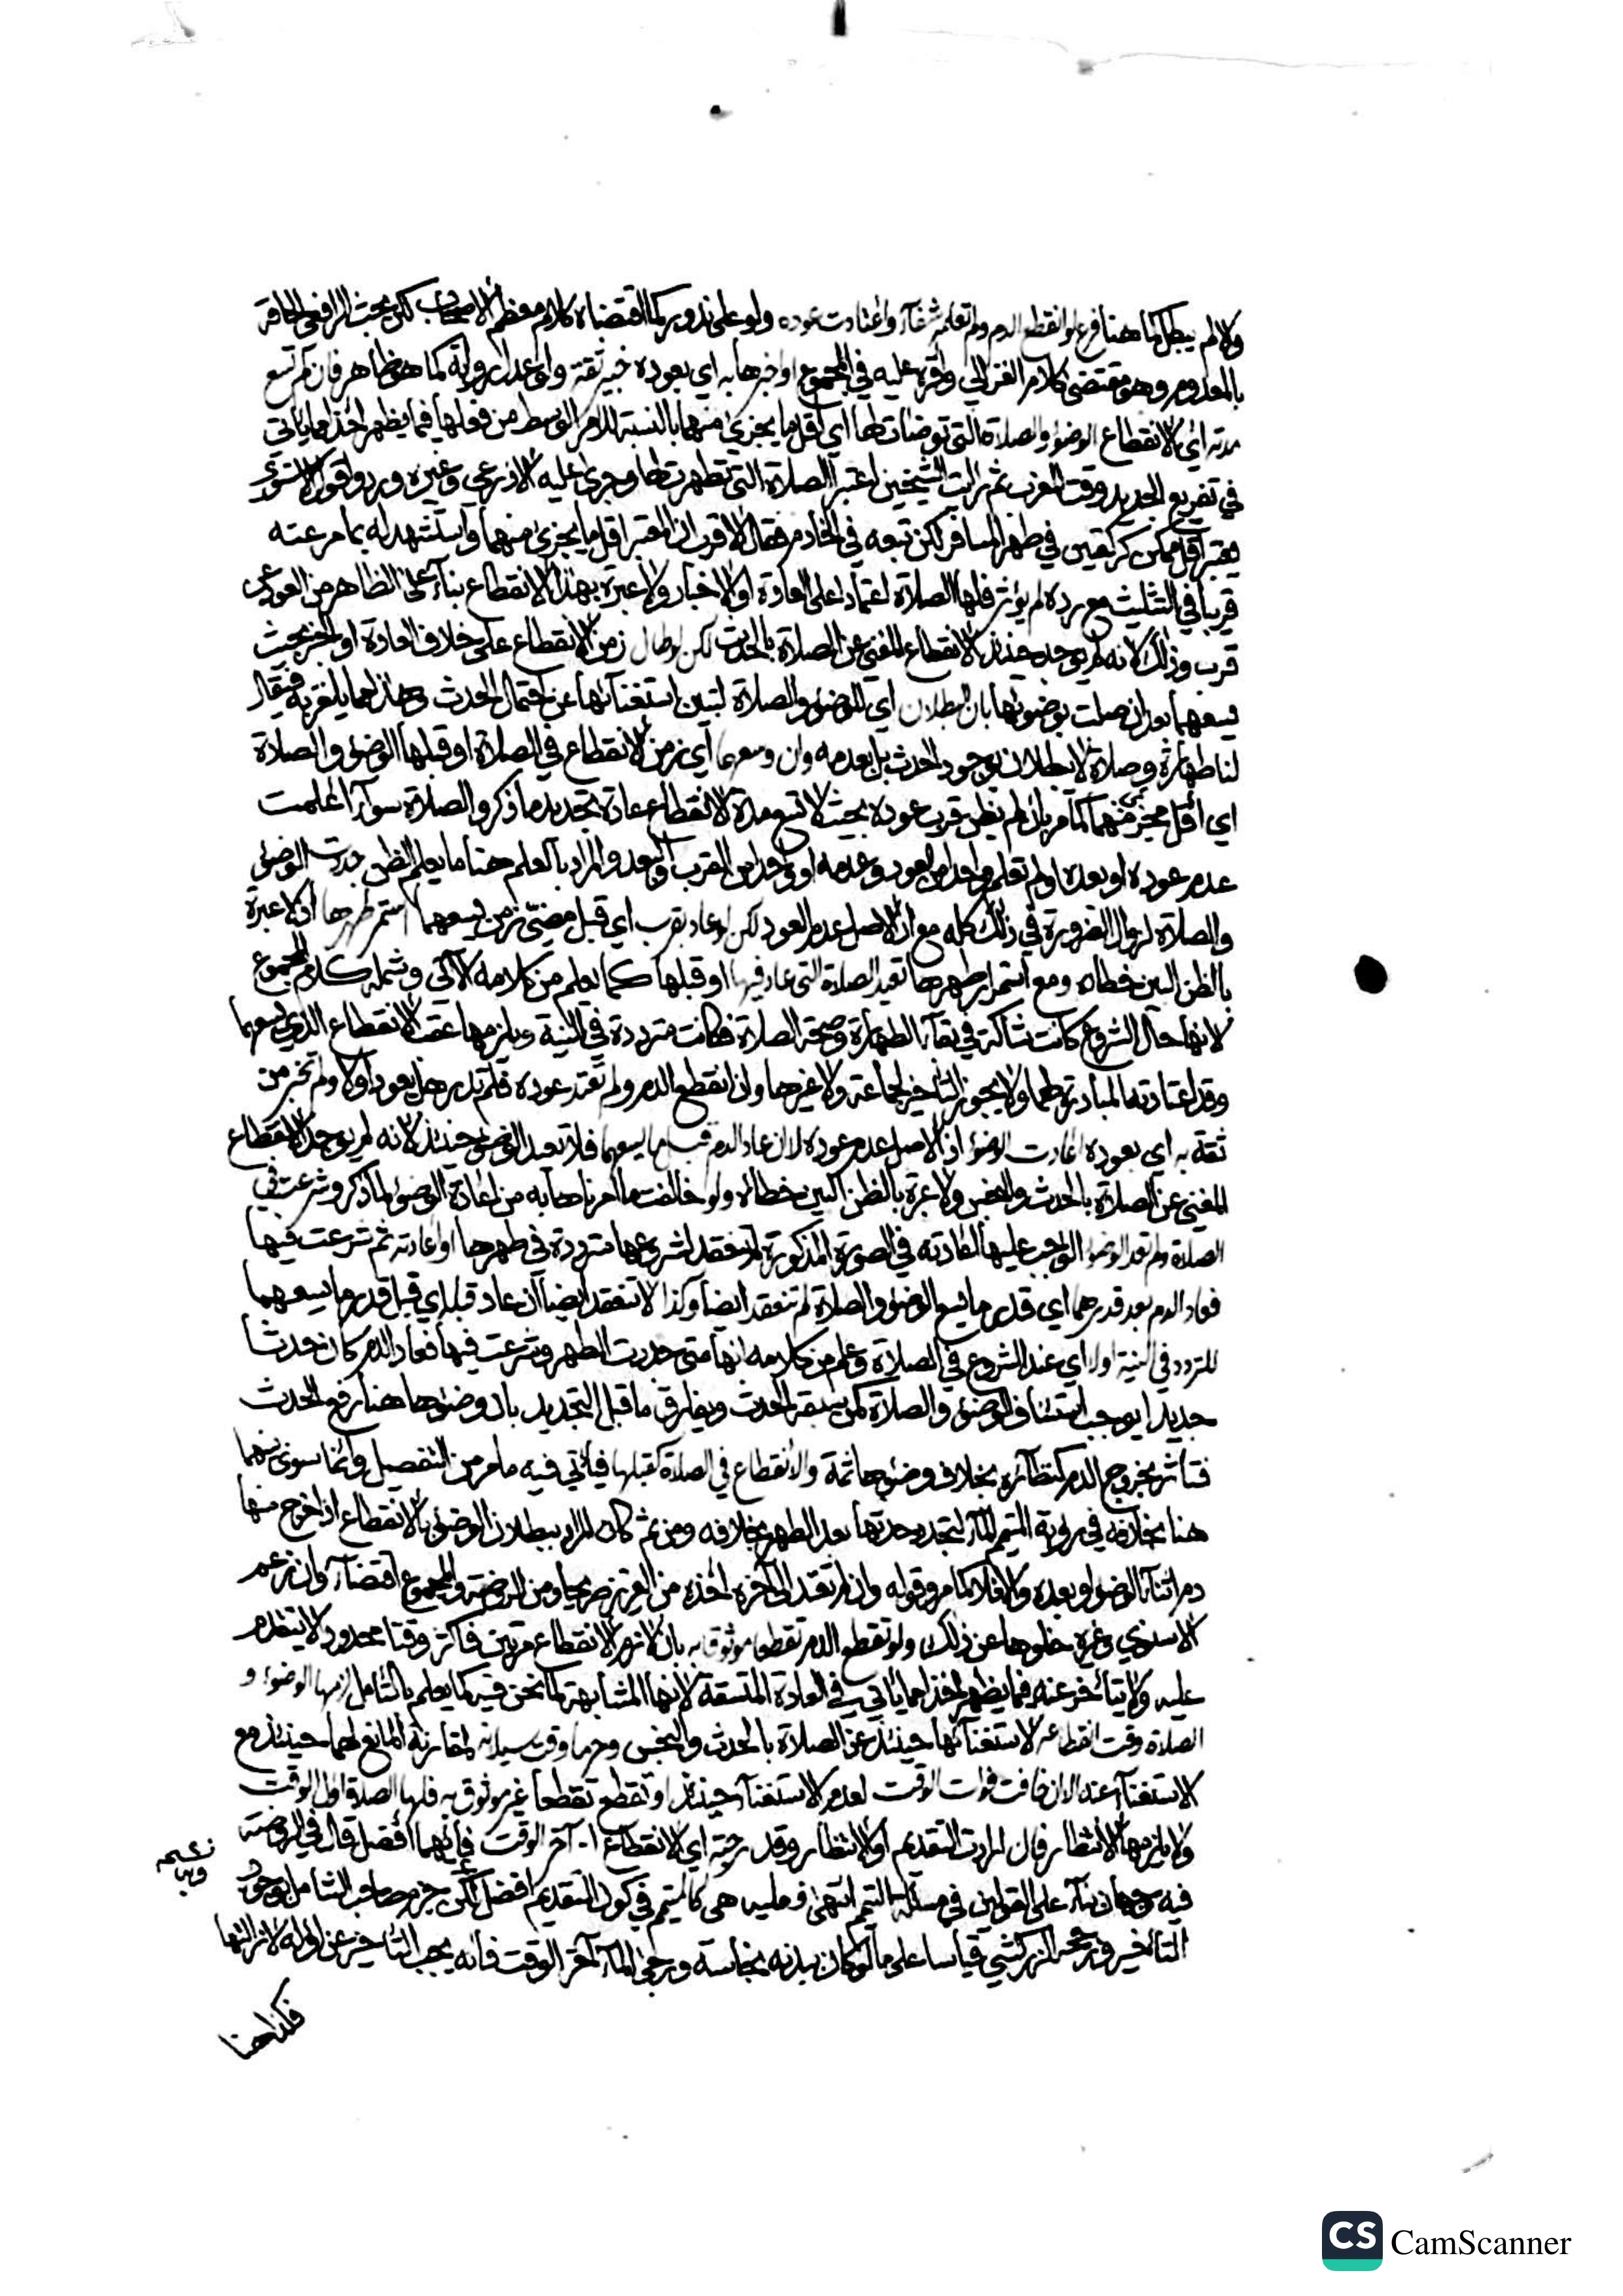 والا لم يبطل كما هنا فرع لو انقطع الدم ولم تعلم شفاء واعتادت عوده ولو على ندور كما اقتضاه كلام معظم الاصحاب لكن بحث الرافعي الحاقه
بالمعدوم وهو مقتضى كلام الغزالي واقره عليه في المجموع او اخبرها به اي بعوده خبير ثقة ولو عدل رواية كما هو ظاهر فان لم تسع
مدته اي الانقطاع الوضوء والصلاة التي توضات لها اي اقل ما يجزئ منهما بالنسبة للامر الوسط من فعلها فيما يظهر اخذا مما ياتي
في تفريع الجديد وقت المغرب ثم رايت الشيخين اعتبر الصلاة التي تطهرت لها وجرى عليه الاذرعي وغيره وردوا قول الاسنوي
يعتبر اقل ممكن كركعتين في ظهر المسافر لكن تبعه في الخادم فقال الاقرب ان المعتبر اقل ما يجزئ منهما واستشهد له بما مر عنه
قريبا في التثليث مع رده لم يؤثر فلها الصلاة اعتمادا على العادة او الاخبار ولا عبرة بهذا الانقطاع بناء على الظاهر من العود عن
قرب وذلك لانه لم يوجد حينئذ الانقطاع المغني عن الصلاة بالحدث لكن لو طال زمن الانقطاع على خلاف العادة او الخبر بحيث
يسعهما بعد ان صلت بوضوئها بان البطلان اي للوضوء والصلاة لتبين استغنائها عن احتمال الحدث وهذا مما يلغز به فيقال
لنا طهارة وصلاة لا يبطلان بوجود الحدث بل بعدمه وان وسعهما اي زمن الانقطاع في الصلاة او قبلها الوضوء والصلاة
اي اقل مجزئ منهما كما مر بان لم يظن قرب عوده بحيث لا تسع مدة الانقطاع عادة تجديد ما ذكر والصلاة سواء اعلمت
عدم عوده او بعده او لم تعلم واحدا من العود وعدمه او واحدا من القرب والبعد والمراد بالعلم هنا ما يعلم الظن جددت الوضوء
والصلاة لزوال الضرورة في ذلك كله مع ان الاصل عدم العود لكن لو عاد بقرب اي قبل مضي زمن يسعهما استمر طهرها اذ لا عبرة
بالظن البين خطاه ومع استمرار طهرها تعيد الصلاة التي عاد فيها او قبلها كما يعلم من كلامه الآتي وشمله كلام المجموع
لانها حال الشروع كانت شاكة في بقاء الطهارة وصحة الصلاة فكانت مترددة في النية ويلزمها عقب الانقطاع الذي يسعهما
وقد اعتادته المبادرة لهما ولا يجوز التاخير لجماعة ولا غيرها وان انقطع الدم ولم تعتد عوده فلم تدر هل يعود او لا ولم تخبر من
ثقة به اي بعوده اعادت الوضوء اذ الاصل عدم عوده لا ان عاد الدم قبل ما يسعهما فلا تعيد الوضوء حينئذ لانه لم يوجد الانقطاع
المغني عن الصلاة بالحدث والنجس ولا عبرة بالظن البين خطاه ولو خالفت ما امرناها به من اعادة الوضوء لما ذكر وشرعت في
الصلاة ولم تعد الوضوء الواجب عليها اعادته في الصورة المذكورة لم تنعقد لشروعها مترددة في طهرها او اعادته ثم شرعت فيها
فعاد الدم بعد قدرهما اي قدر ما يسع الوضوء والصلاة لم تنعقد ايضا وكذا لا تنعقد ايضا ان عاد قبله اي قبل قدر ما يسعهما
للتردد في النية اولا اي عند الشروع في الصلاة وعلم من كلامه انها متى جددت الطهر وشرعت فيها فعاد الدم كان حدثا
جديدا يوجب استئناف الوضوء والصلاة كمن سبقه الحدث ويفارق ما قبل التجديد بان وضوءها هنا رفع الحدث
فتاثر بخروج الدم كنظائره بخلاف وضوءها ثمة والانقطاع في الصلاة كقبلها فياتي فيه ما مر من التفصيل وانما سوى بينهما
هنا بخلافه في رؤية المتيمم الماء لتجدد حدثها بعد الطهر بخلافه ومن ثم كان المراد ببطلان الوضوء بالانقطاع اذا خرج منها
دم اثناء الوضوء او بعده والا فلا كما مر وقوله وان لم تعتد الى آخره اخذه من العزيز صريحا ومن الروضة والمجموع اقتضاء وان زعم
الاسنوي وغيره خلوهما عن ذلك ولو تقطع الدم تقطعا موثوقا به بان لازم الانقطاع مرتين فاكثر وقتا محدودا لا يتقدم
عليه ولا يتاخر عنه فيما يظهر اخذا مما ياتي في العادة المتسقة لانها المشابهة لما نحن فيه كما يعلم بالتامل لزمها الوضوء و
الصلاة وقت انقطاعه لاستغنائها حينئذ عن الصلاة بالحدث والنجس وحرما وقت سيلانه لمقارنة المانع لهما حينئذ مع
الاستغناء عنه الا ان خافت فوات الوقت لعدم الاستغناء حينئذ او تقطع تقطعا غير موثوق به فلها الصلاة اول الوقت
ولا يلزمها الانتظار فان ارادت التقديم او الانتظار وقد رجته اي الانقطاع آخر الوقت فايهما افضل قال في الروضة
فيه وجهان بناء على القولين في مسئلة التيمم انتهى فعليه هي كالمتيمم في كون التقديم افضل لكن جزم صاحب الشامل بوجوب
التاخير ورجحه الزركشي قياسا على ما لو كان ببدنه نجاسة ورجى الماء آخر الوقت فانه يجب التاخير عن اوله لازالتها
فكذا هنا